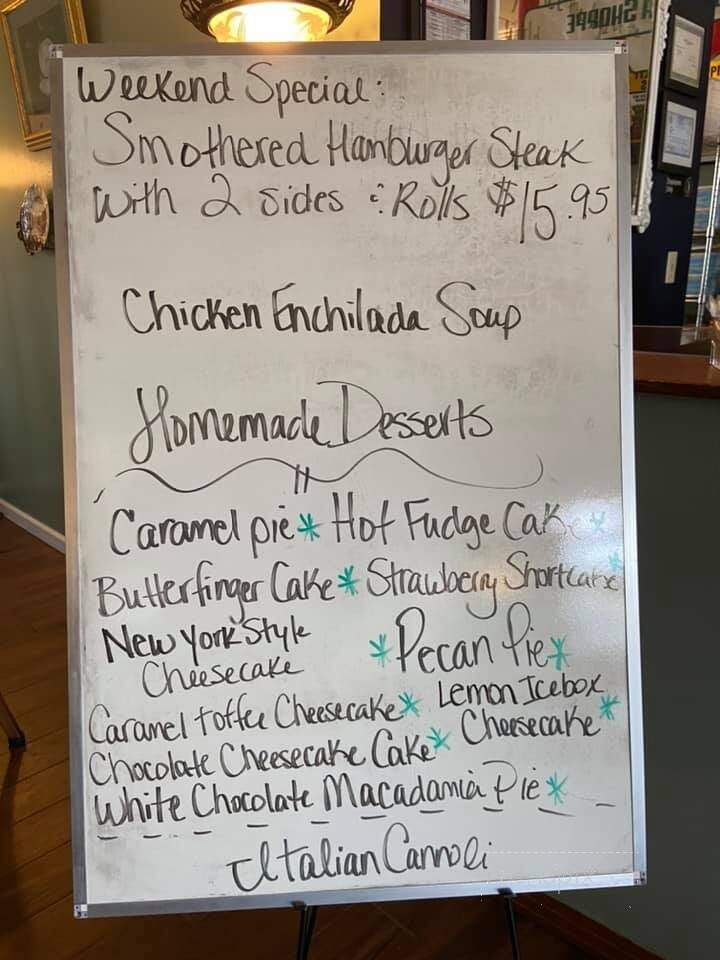 Weekend Special:
Smothered Hamburger Steak
with 2 sides & Rolls $15.95
Chicken Enchilada Soup
Homemade Desserts
Caramel pie * Hot Fudge Cake *
Butterfinger Cake * Strawberry Shortcake *
New York Style
Cheesecake
* Pecan Pie *
Caramel toffee Cheesecake *
Lemon Icebox
Cheesecake *
Chocolate Cheesecake Cake *
White Chocolate Macadamia Pie *
Italian Cannoli
SHOPPE